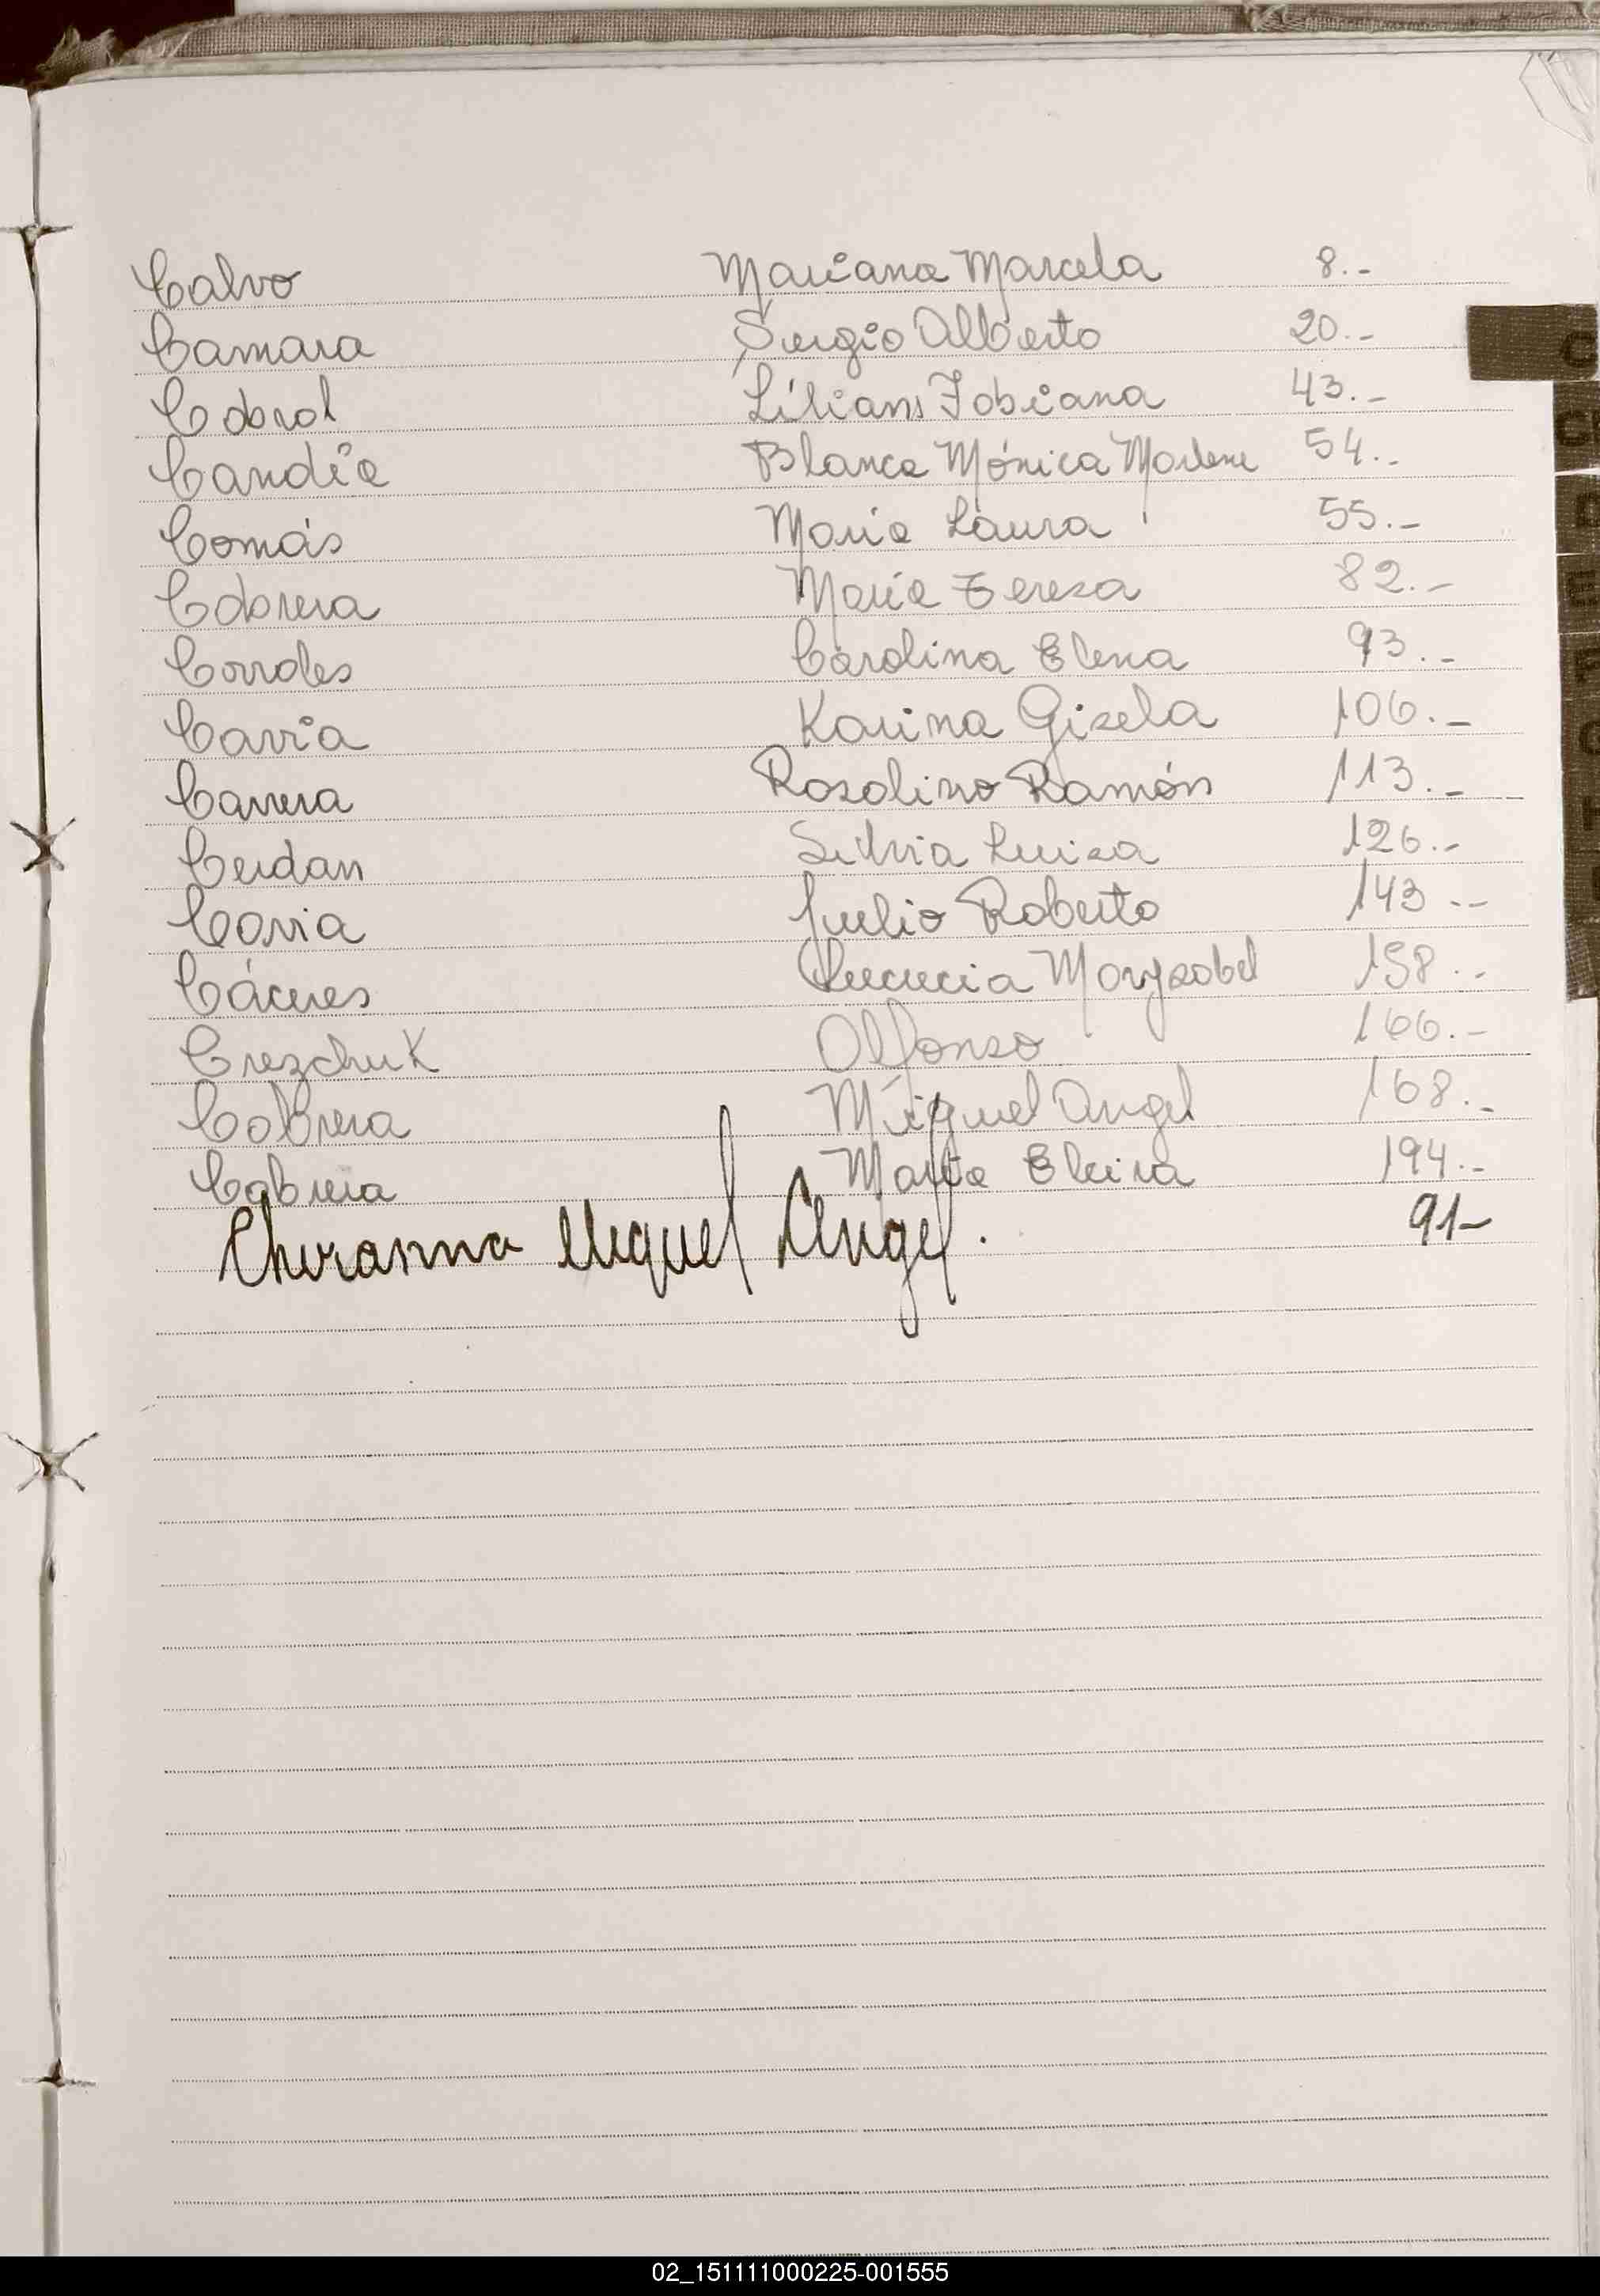 Calvo Mariana Marcela 8.-
Camara Sergio Alberto 20.-
Cabral Liliana Fabiana 43.-
Candia Blanca Mónica Marlene 54.-
Comás María Laura 55.-
Cabrera María Tereza 82.-
Corrales Carolina Elena 93.-
Carria Karina Gisela 106.-
Carrera Rosolino Ramón 113.-
Cerdan Silvia Luisa 126.-
Julio Roberto 143.-
Cáceres Marysabel 158.-
Crezchuk Alfonso 166.-
Cabrera Miguel Angel 168.-
Cabrera María Elvira 194.-
Miguel Angel. 91-
C
02_151111000225-001555